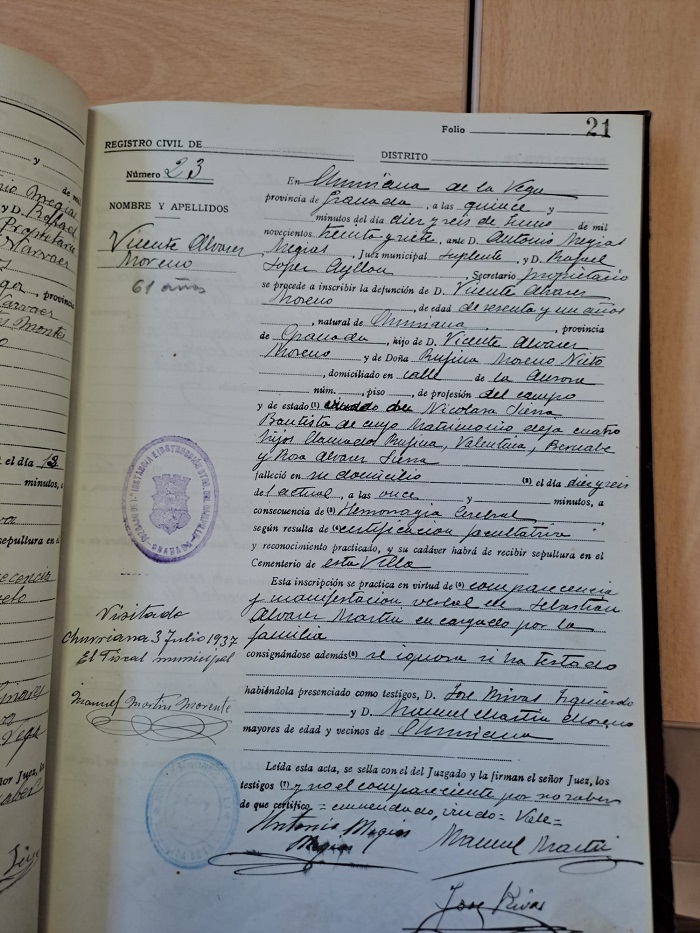 Folio 21
REGISTRO CIVIL DE
DISTRITO
Número 23
NOMBRE Y APELLIDOS
Vicente Alvarez
Moreno
61 años
En Churriana de la Vega
provincia de Granada, a las quince y
minutos del día diez y seis de Junio de mil
novecientos treinta y siete, ante D. Antonio Megias
Megias, Juez municipal Suplente, y D. Rafael
Lopez Ayllon, Secretario propietario
se procede a inscribir la defunción de D. Vicente Alvarez
Moreno, de edad de sesenta y un años
, natural de Churriana, provincia
de Granada, hijo de D. Vicente Alvarez
Moreno y de Doña Rufina Moreno Nieto
, domiciliado en calle de la Aurora
núm. , piso , de profesión del campo
y de estado (1) viudo de Nicolasa Sierra
Bautista de cuyo matrimonio deja cuatro
hijos llamados Rufina, Valentina, Bernabe
y Rosa Alvarez Sierra
falleció en su domicilio (2) el día diez y seis
del actual, a las once y minutos, a
consecuencia de (3) Hemorragia Cerebral
según resulta de (4) certificacion facultativa
y reconocimiento practicado, y su cadáver habrá de recibir sepultura en el
Cementerio de esta Villa
Esta inscripción se practica en virtud de (5) comparecencia
y manifestacion verbal de Sebastian
Alvarez Martin encargado por la
familia
consignándose además (6) se ignora si ha testado
habiéndola presenciado como testigos, D. Jose Rivas Izquierdo
y D. Manuel Martin Moreno
mayores de edad y vecinos de Churriana
Leída esta acta, se sella con el del Juzgado y la firman el señor Juez, los
testigos (7) y no el compareciente por no saber
de que certifico = enmendado, viudo = Vale =
Antonio Megias
Megias
Manuel Martin
Jose Rivas
Visitado
Churriana 3 Julio 1937
El Fiscal municipal
Manuel Martin Morente